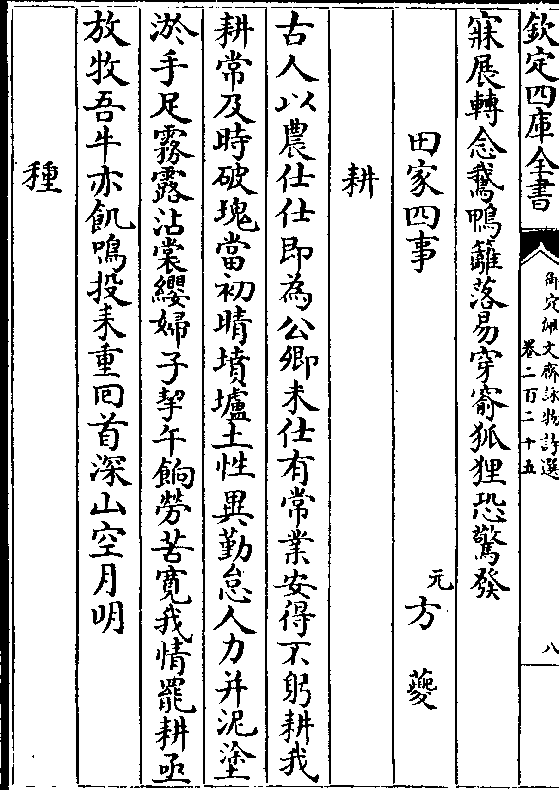 欽定四庫全書
御定佩文齋詠物詩選
卷二百二十五
八
寐展轉念鵝鴨籬落易穿窬狐狸恐驚發
田家四事
元方夔
耕
古人以農仕仕即為公卿未仕有常業安得不躬耕我
耕常及時破塊當初晴墳壚土性異勤怠人力并泥塗
淤手足霧露沾裳纓婦子挈午餉勞苦寛我情罷耕亟
放牧吾牛亦飢鳴投耒重回首深山空月明
種